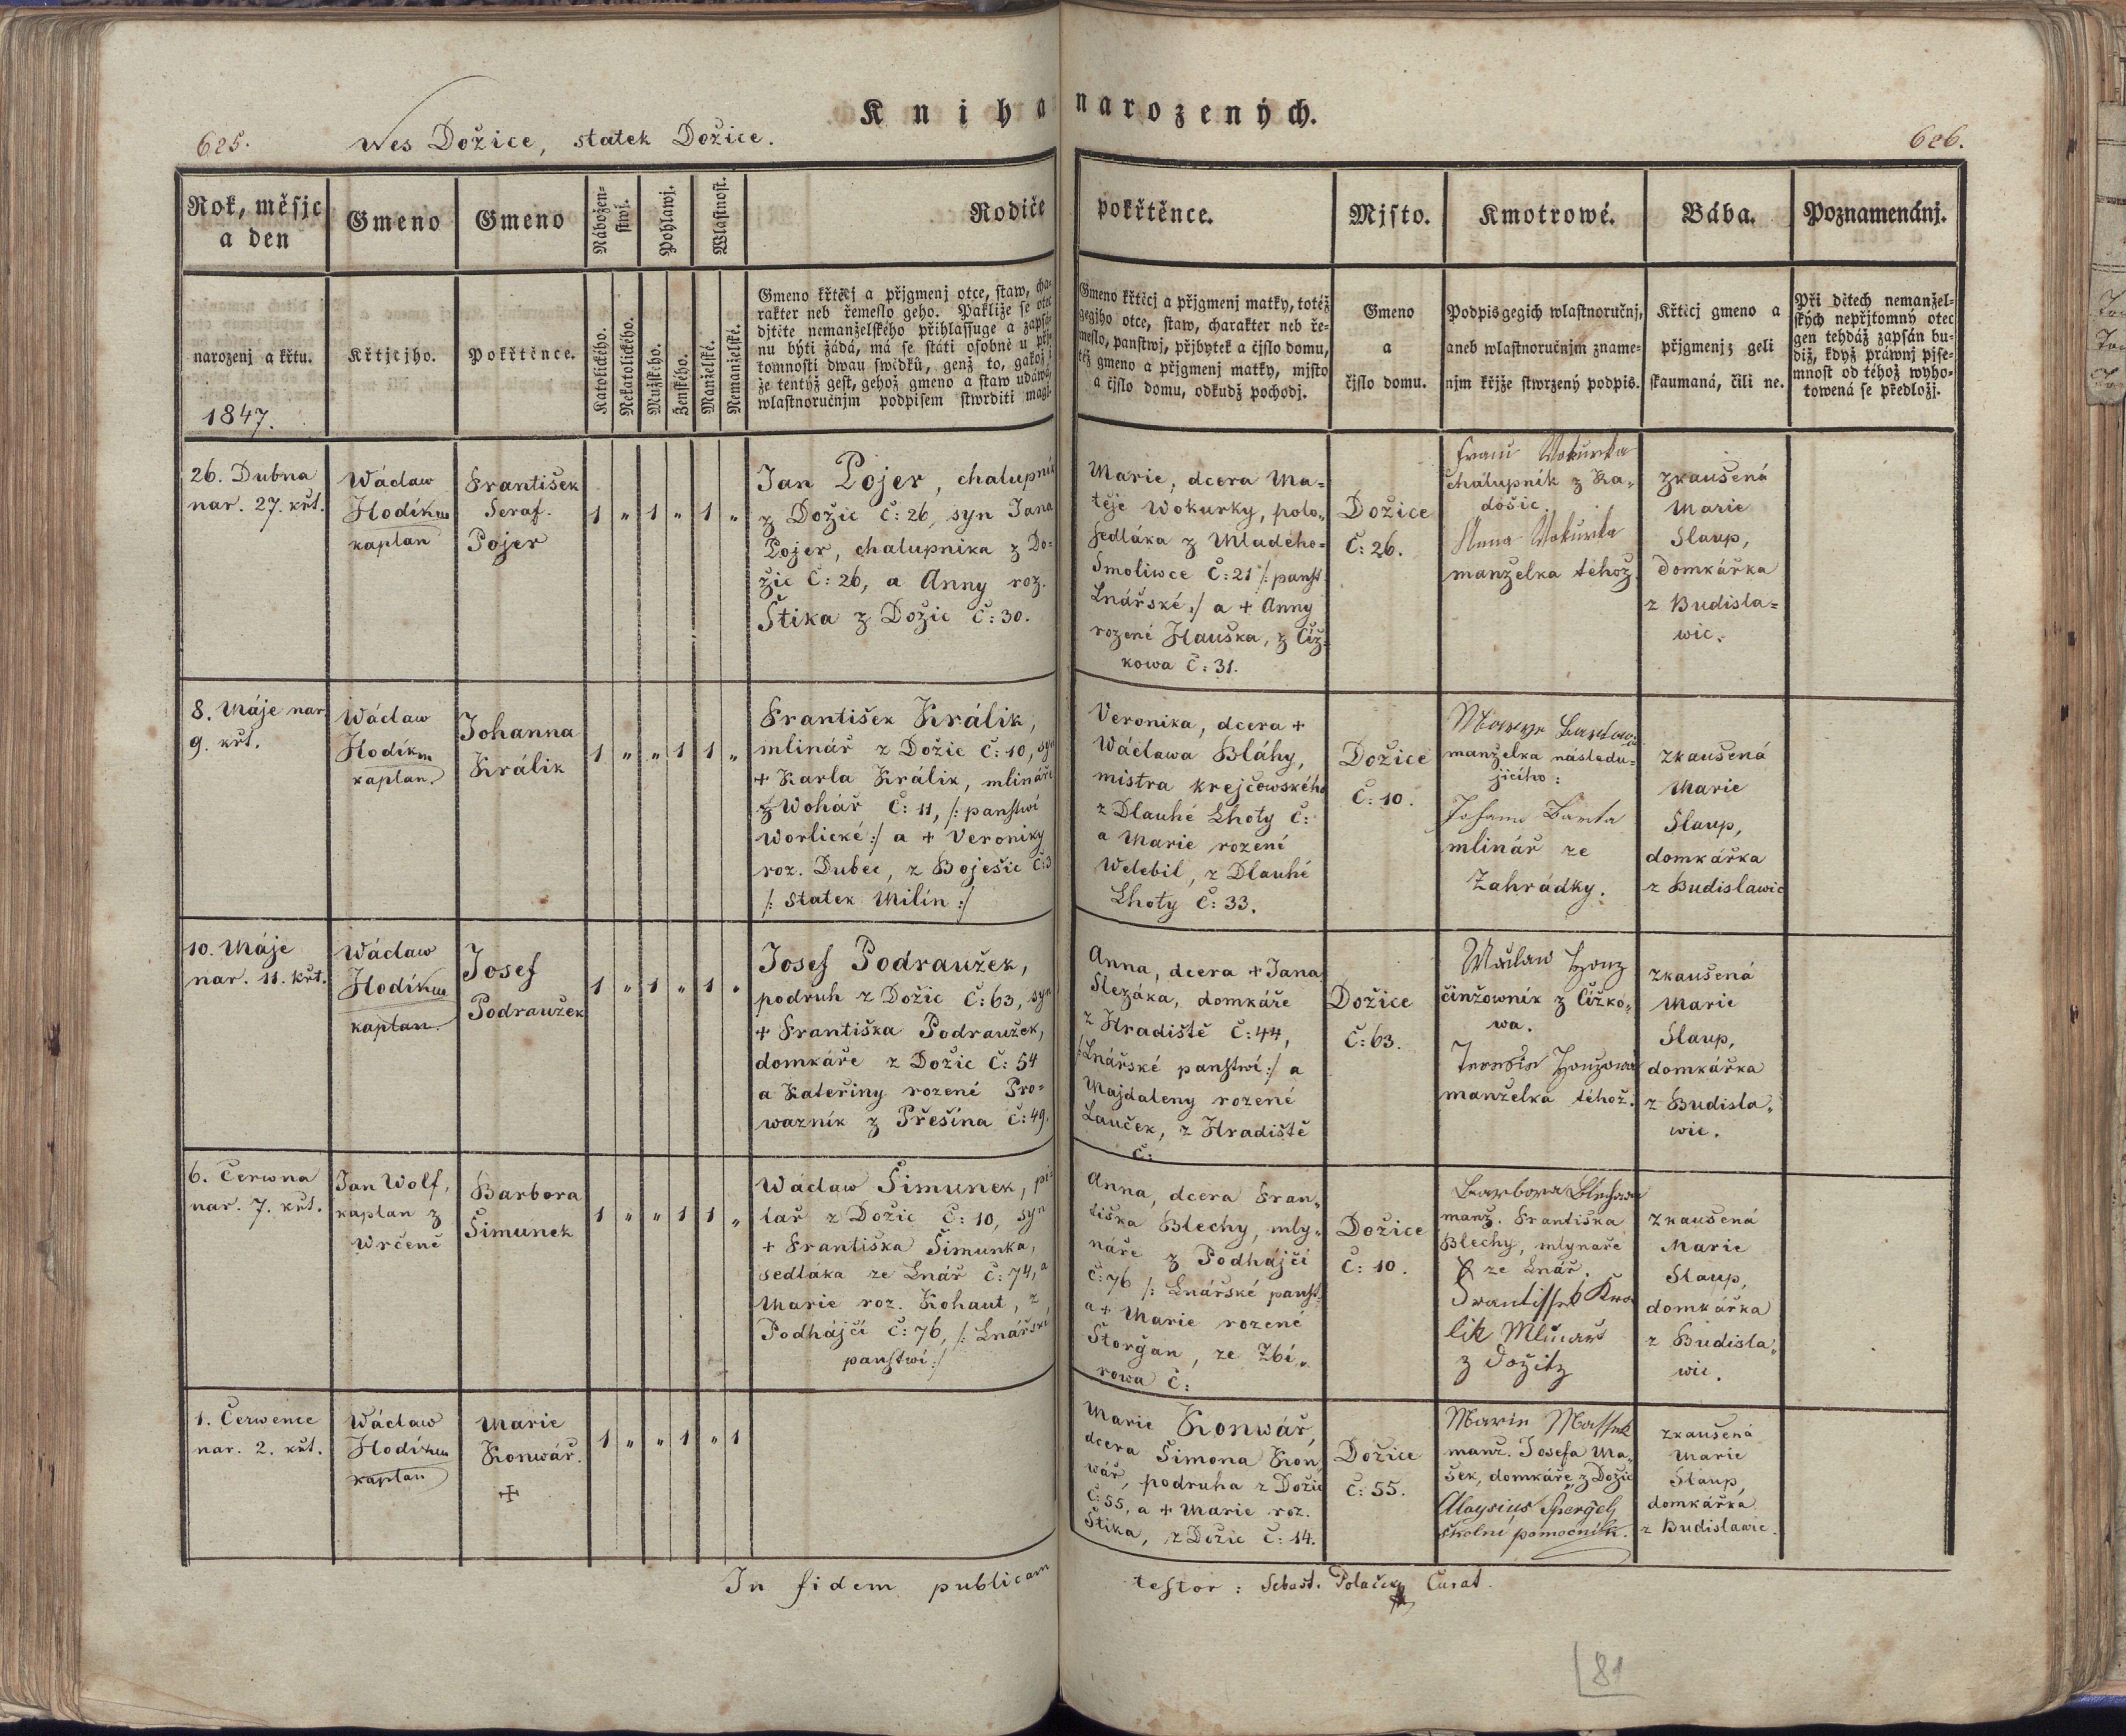 Kniha narozených.
625.
Wes Dožice, statek Dožice.
626.
Rok, měsjc
a den
Gmeno
Gmeno
Nábožen-
stwj.
Pohlawj.
Wlastnost.
Rodiče
pokřtěnce.
Mjsto.
Kmotrowé.
Bába.
Poznamenánj.
narozenj a křtu.
1847.
Křtjcjho.
Pokřtěnce.
Katolického.
Nekatolického.
Mužského.
Ženského.
Manželské.
Nemanželské.
Gmeno křtěcj a přjgmenj otce, staw, cha-
rakter neb řemeslo geho. Pakliže se otec
djtěte nemanželského přihlassuge a zapsá-
nu býti žádá, má se státi osobně u přj-
tomnosti dwau swědků, genž to, gakož i
že tentýž gest, gehož gmeno a staw udáwá,
wlastnoručnjm podpisem stwrditi magj.
Gmeno křtěcj a přjgmenj matky, totéž
gegjho otce, staw, charakter neb ře-
meslo, panstwj, přjbytek a čjslo domu,
též gmeno a přjgmenj matky, mjsto
a čjslo domu, odkudž pocházj.
Gmeno
a
čjslo domu.
Podpis gegich wlastnoručnj,
aneb wlastnoručnjm zname-
njm křjže stwrzený podpis.
Křtěcj gmeno a
přjgmenj; geli
skaumaná, čili ne.
Při dětech nemanžel-
ských nepřjtomný otec
gen tehdáž zapsán bu-
diž, když práwnj pjse-
mnost od téhož wyho-
towená se předložj.
26. Dubna
nar. 27. křt.
Wáclaw
Hodík
kaplan
František
Seraf.
Pojer
1 " 1 " 1 "
Jan Pojer, chalupník
z Dožic Č: 26, syn Jana
Pojer, chalupnika z Do=
žic Č: 26, a Anny roz.
Štika z Dožic Č: 30.
Marie, dcera Ma=
těje Wokurky, polo„
sedláka z Mladého=
Smoliwce Č: 21 /: panst
Lnářské :/ a + Anny
rozené Hauška, z Číž=
kowa Č: 31.
Dožice
Č: 26.
Wokurka
chálupník z Ra„
došic.
Anna Wokurka
manželka téhož.
zkaušená
Marie
Slaup,
domkářka
z Budisla=
wic.
8. Máje nar.
9. křt.
Wáclaw
Hodík
kaplan.
Johanna
Králik
1 " " 1 1 "
František Králik,
mlinář z Dožic Č: 10, syn
+ Karla Králik, mlináře
z Wohář Č: 11, /: panstwí
Worlické :/ a + Veroniky
roz. Dubec, z Boješic Č: 3
/: statek Milín :/
Veronika, dcera +
Wáclawa Bláhy,
mistra krejčowského
z Dlauhé Lhoty Č:
a Marie rozené
Welebil, z Dlauhé
Lhoty Č: 33.
Dožice
Č: 10.
manželka následu=
jicího:
Johann Barta
mlinář ze
Zahrádky.
zkaušená
Marie
Slaup,
domkářka
z Budislawic
10. Máje
nar. 11. křt.
Wáclaw
Hodík
kaplan.
Josef
Podraužek
1 " 1 " 1 "
Josef Podraužek,
podruh z Dožic Č: 63, syn
+ Františka Podraužek,
domkáře z Dožic Č: 54
a Kateřiny rozené Pro=
wazník z Přešína Č: 49.
Anna, dcera + Jana
Slezáka, domkáře
z Hradiště Č: 44,
/: Lnářské panstwí :/ a
Majdaleny rozené
Lauček, z Hradiště
Č:
Dožice
Č: 63.
Wáclaw Honz
činžowník z Čížko„
wa.
manželka téhož.
zkaušená
Marie
Slaup,
domkářka
z Budisla„
wic.
6. Čerwna
nar. 7. křt.
Jan Wolf,
kaplan z
Wrčeně
Barbora
Šimunek
1 " " 1 1 "
Wáclaw Šimunek, pi=
lař z Dožic Č: 10, syn
+ Františka Šimunka,
sedláka ze Lnář Č: 74, a
Marie roz. Kohaut, z
Podhájčí Č: 76, /: Lnářské
panstwí :/
Anna, dcera Fran„
tiška Blechy, mly„
náře z Podhájčí
Č: 76 /: Lnářské panst.
a + Marie rozené
Štorgan, ze Zbi„
rowa Č:
Dožice
Č: 10.
Barbora Blechowa
manž. Františka
Blechy, mlynaře
ze Lnář.
Frantissek Kra
lik Mlinarz
z Dožitz
zkaušená
Marie
Slaup,
domkářka
z Budisla„
wic.
1. Čerwence
nar. 2. křt.
Wáclaw
Hodík
kaplan
Marie
Konwář.
+
1 " " 1 " 1
Marie Konwář,
dcera Šimona Kon„
wář, podruha z Dožic
Č: 55, a + Marie roz.
Štika, z Dožic Č: 14.
Dožice
Č: 55.
manž. Josefa Ma„
šek, domkáře z Dožic
Aloysius Spergel
školní pomocník.
zkaušená
Marie
Slaup,
domkářka
z Budislawic.
In fidem publicam testor: Sebast. Polaček Curat.
81